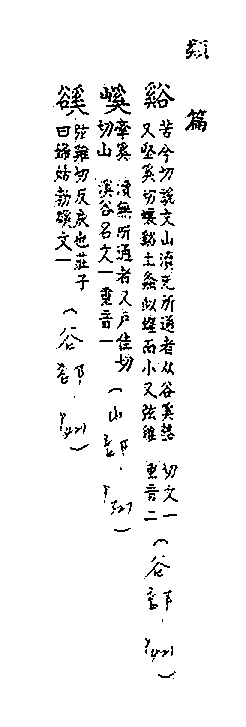 類篇
谿 苦兮切說文山瀆无所通者从谷奚聲
又堅奚切壤谿土螽似蝗而小又弦雞
切文一
重音二
(谷部.P421)
嵠 牽奚
切山
瀆無所通者又戶佳切
溪谷名文一重音一
(山部.P327)
豀 弦雞切反戾也莊子
曰婦姑勃豀文一
(谷部.P421)